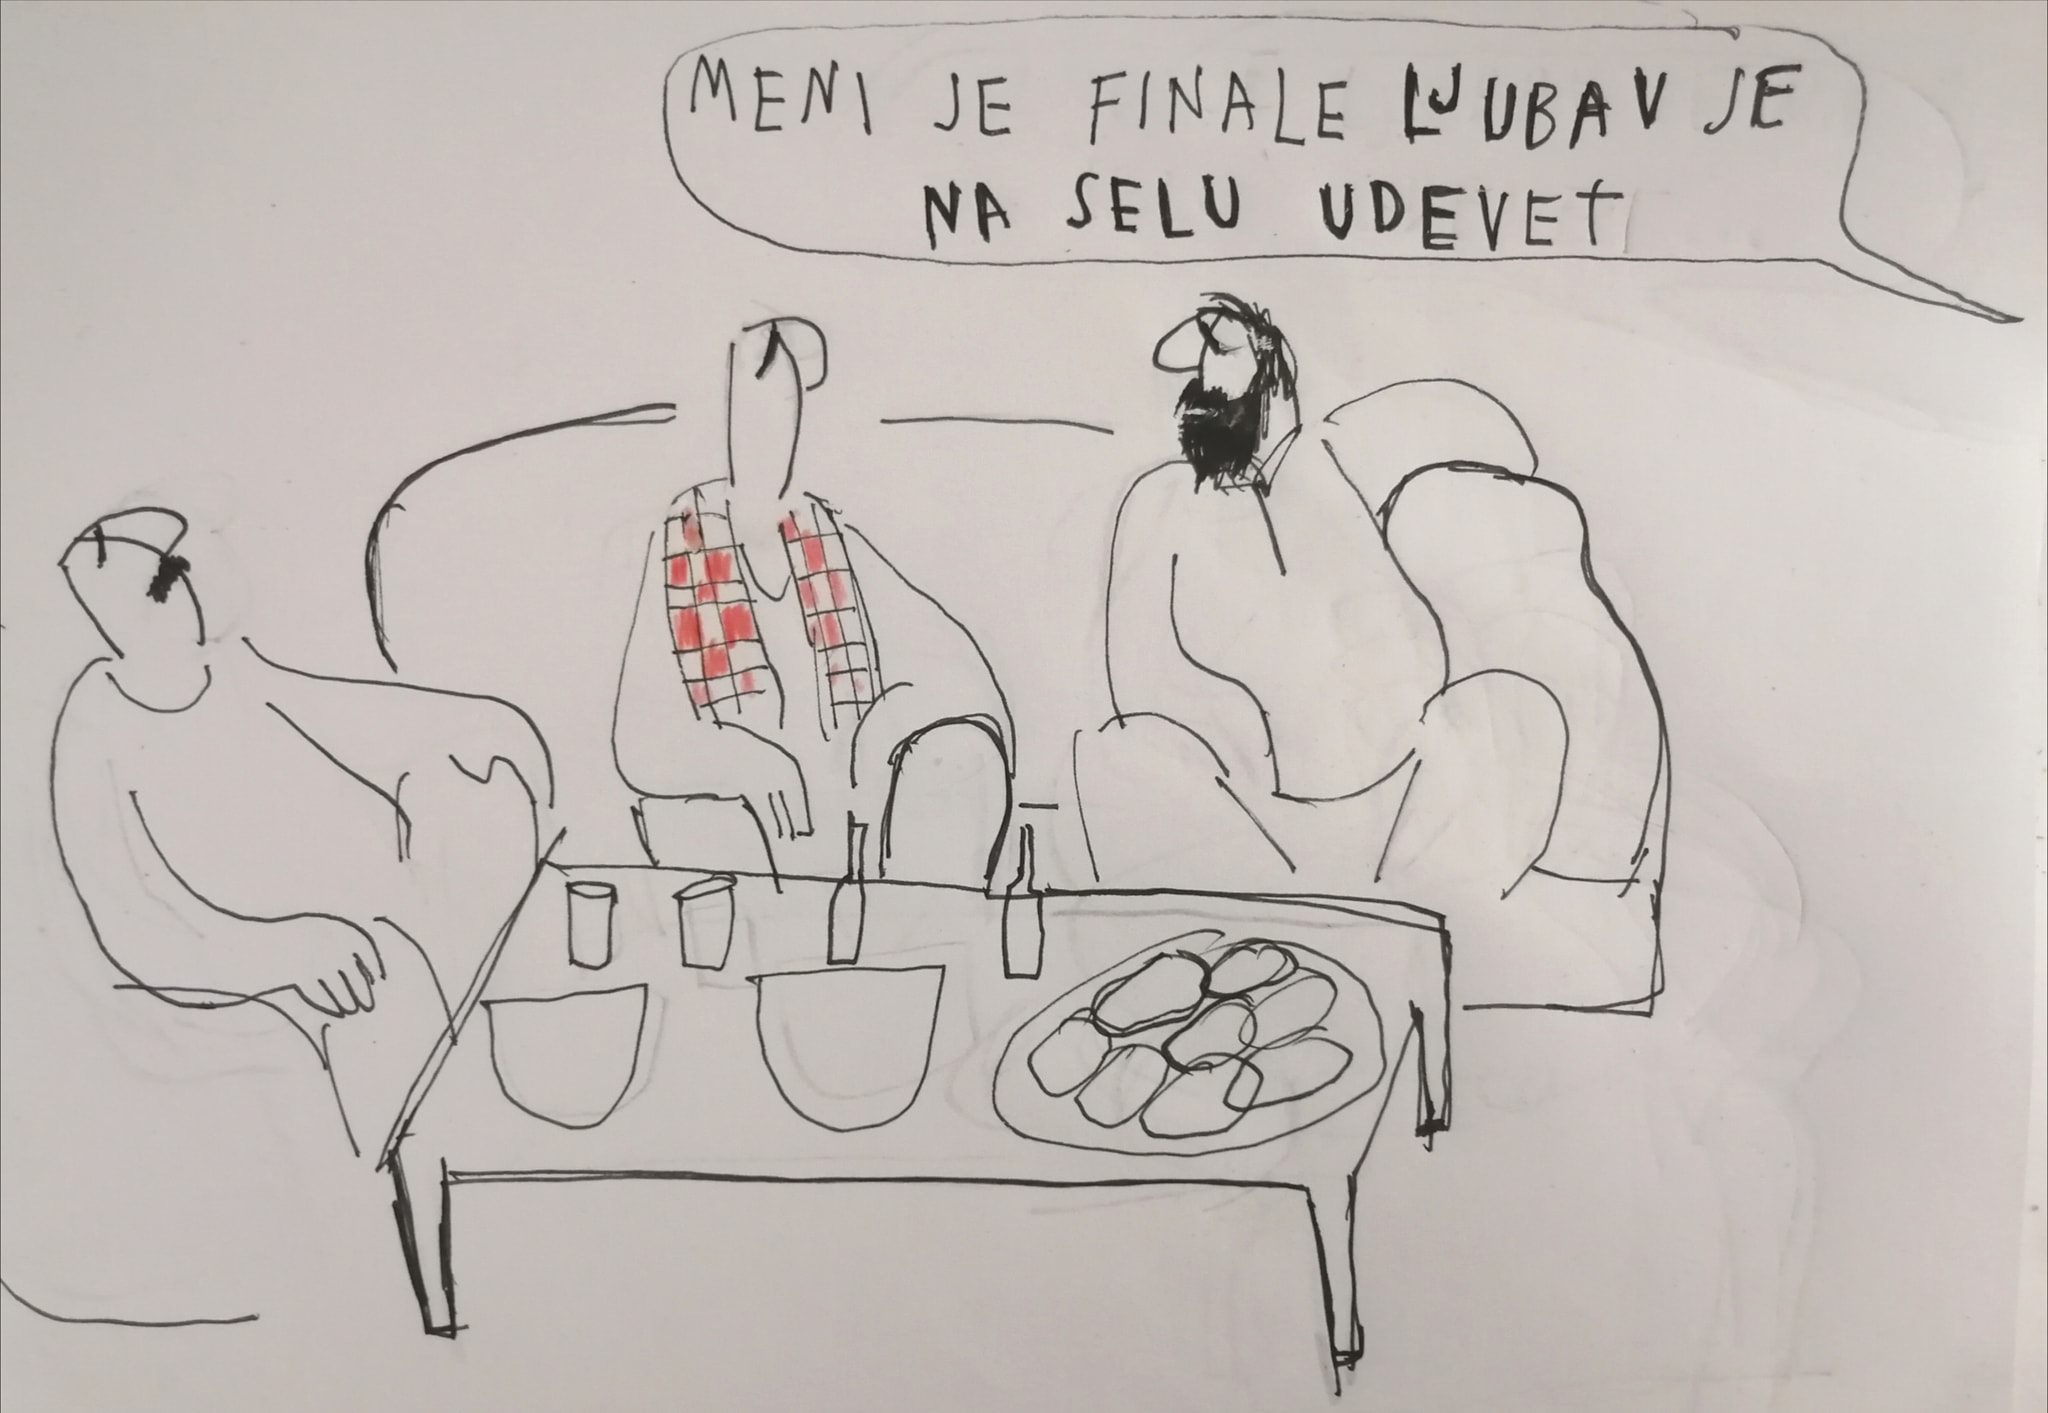 MENI JE FINALE LJUBAV JE
NA SELU UDEVET